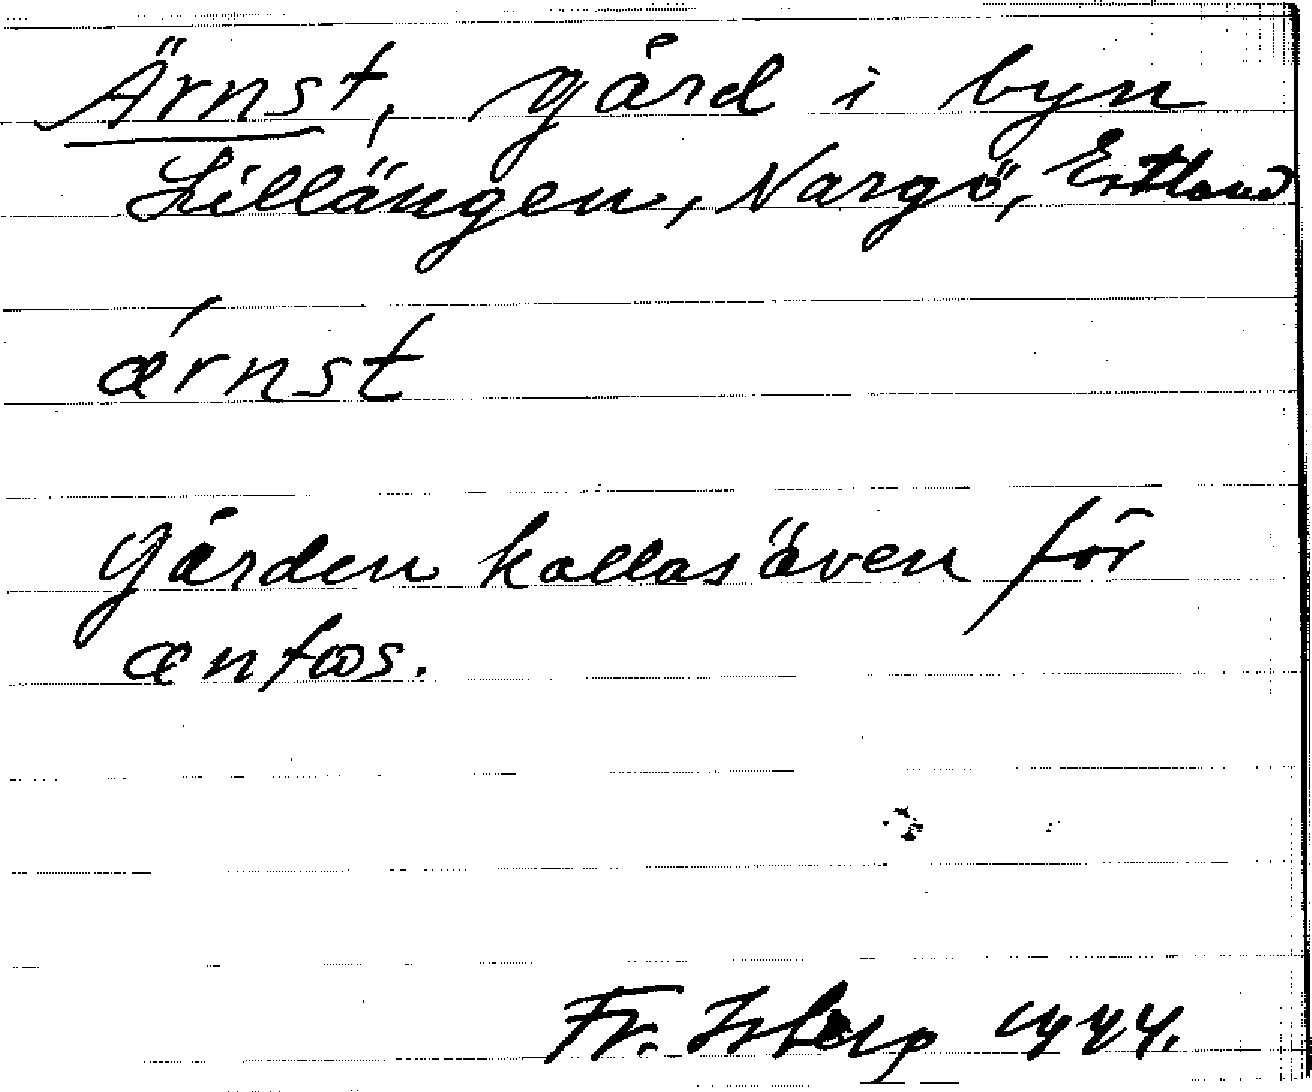 Ärnst, gård i byn
Lillängen, Nargö, Estland
ǽrnst
Gården kallas även för
æntæs.
Fr. Isberg 1944.